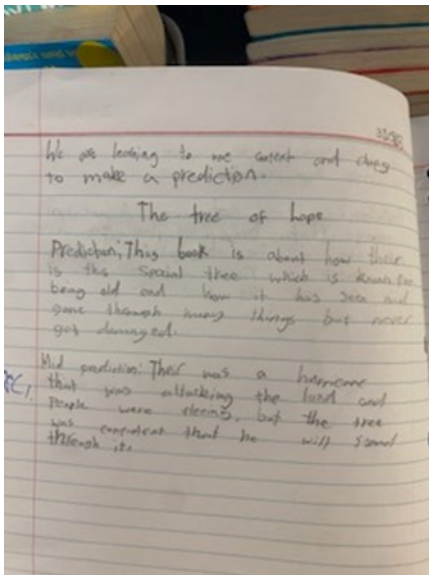 We are learning to use context and clues
to make a prediction.
The tree of hope
Prediction: This book is about how their
is this special tree which is known for
being old and how it has seen and
gone through many things but never
got damaged.
Mid prediction: Their was a hurricane
that was attacking the land and
people were fleeing, but the tree
was confident that he will stand
through it.